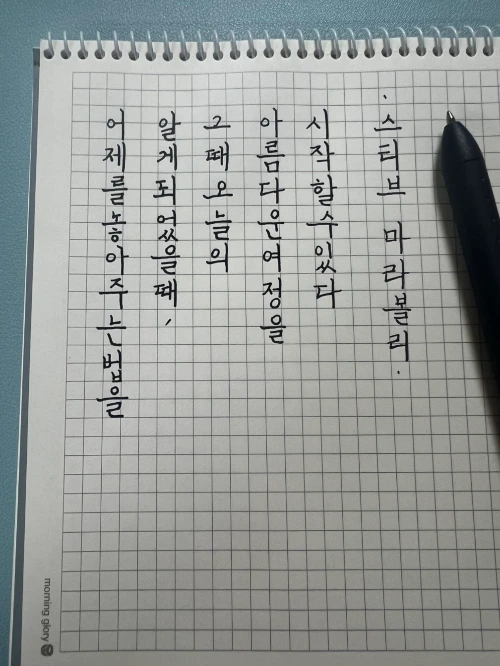 어제를 놓아주는 법을
알게 되었을 때,
그때 오늘의
아름다운 여정을
시작할 수 있다
· 스티브 마라볼리 ·
morning glory